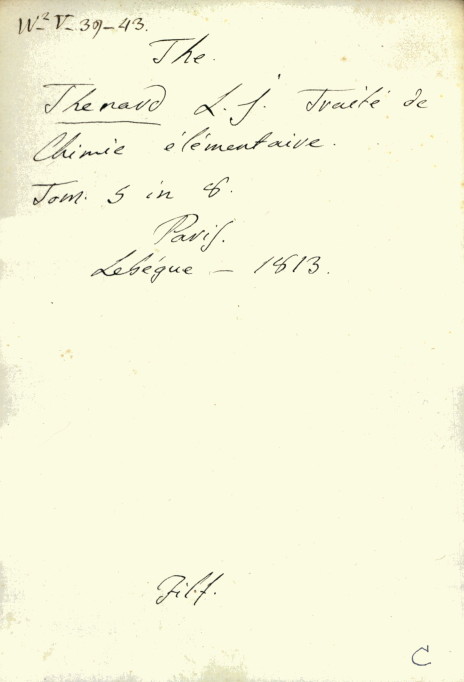 W² V- 39-43.
The.
Thenard L. J. Traité de
Chimie élémentaire.
Tom. 5 in 8.
Paris.
Lebégue - 1813.
Filf.
C